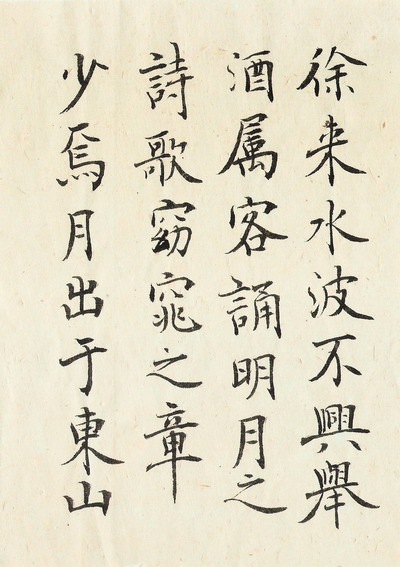 徐来水波不興舉
酒属客誦明月之
詩歌窈窕之章
少焉月出于東山